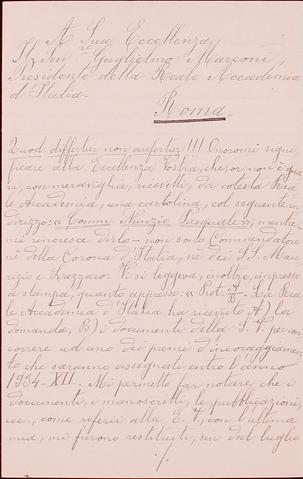 A Sua Eccellenza,
Il Sen.re Guglielmo Marconi,
Presidente della Reale Accademia
d'Italia.
Roma
Quod differtur non aufertur!!! Onoromi signi=
ficare alla Eccellenza Vostra, che, or non è qua
ri, con meraviglia, ricevetti, da cotesta Rea
le Accademia, una cartolina, col seguente in
dirizzo: « Comm. Nunzio Pasquale »; mentre,
mi rincresce dirlo - non sono Commendatore
nè della Corona d'Italia, nè dei S.S. Mau,
rizio e Lazzaro. Vi si leggeva, inoltre, impresso
a stampa, quanto appresso: « Prot. A/B - La Rea
le Accademia d'Italia ha ricevuto A) la
domanda, B) documenti della S. V. per con
correre ad uno dei premi d'incoraggiamen
to che saranno assegnati entro l'anno
1934-XII. Mi permetto far notare che i
documenti, i manoscritti, le pubblicazioni,
ecc., come riferii alla E. V., con l'ultima
mia, mi furono restituiti, sin dal luglio
./.